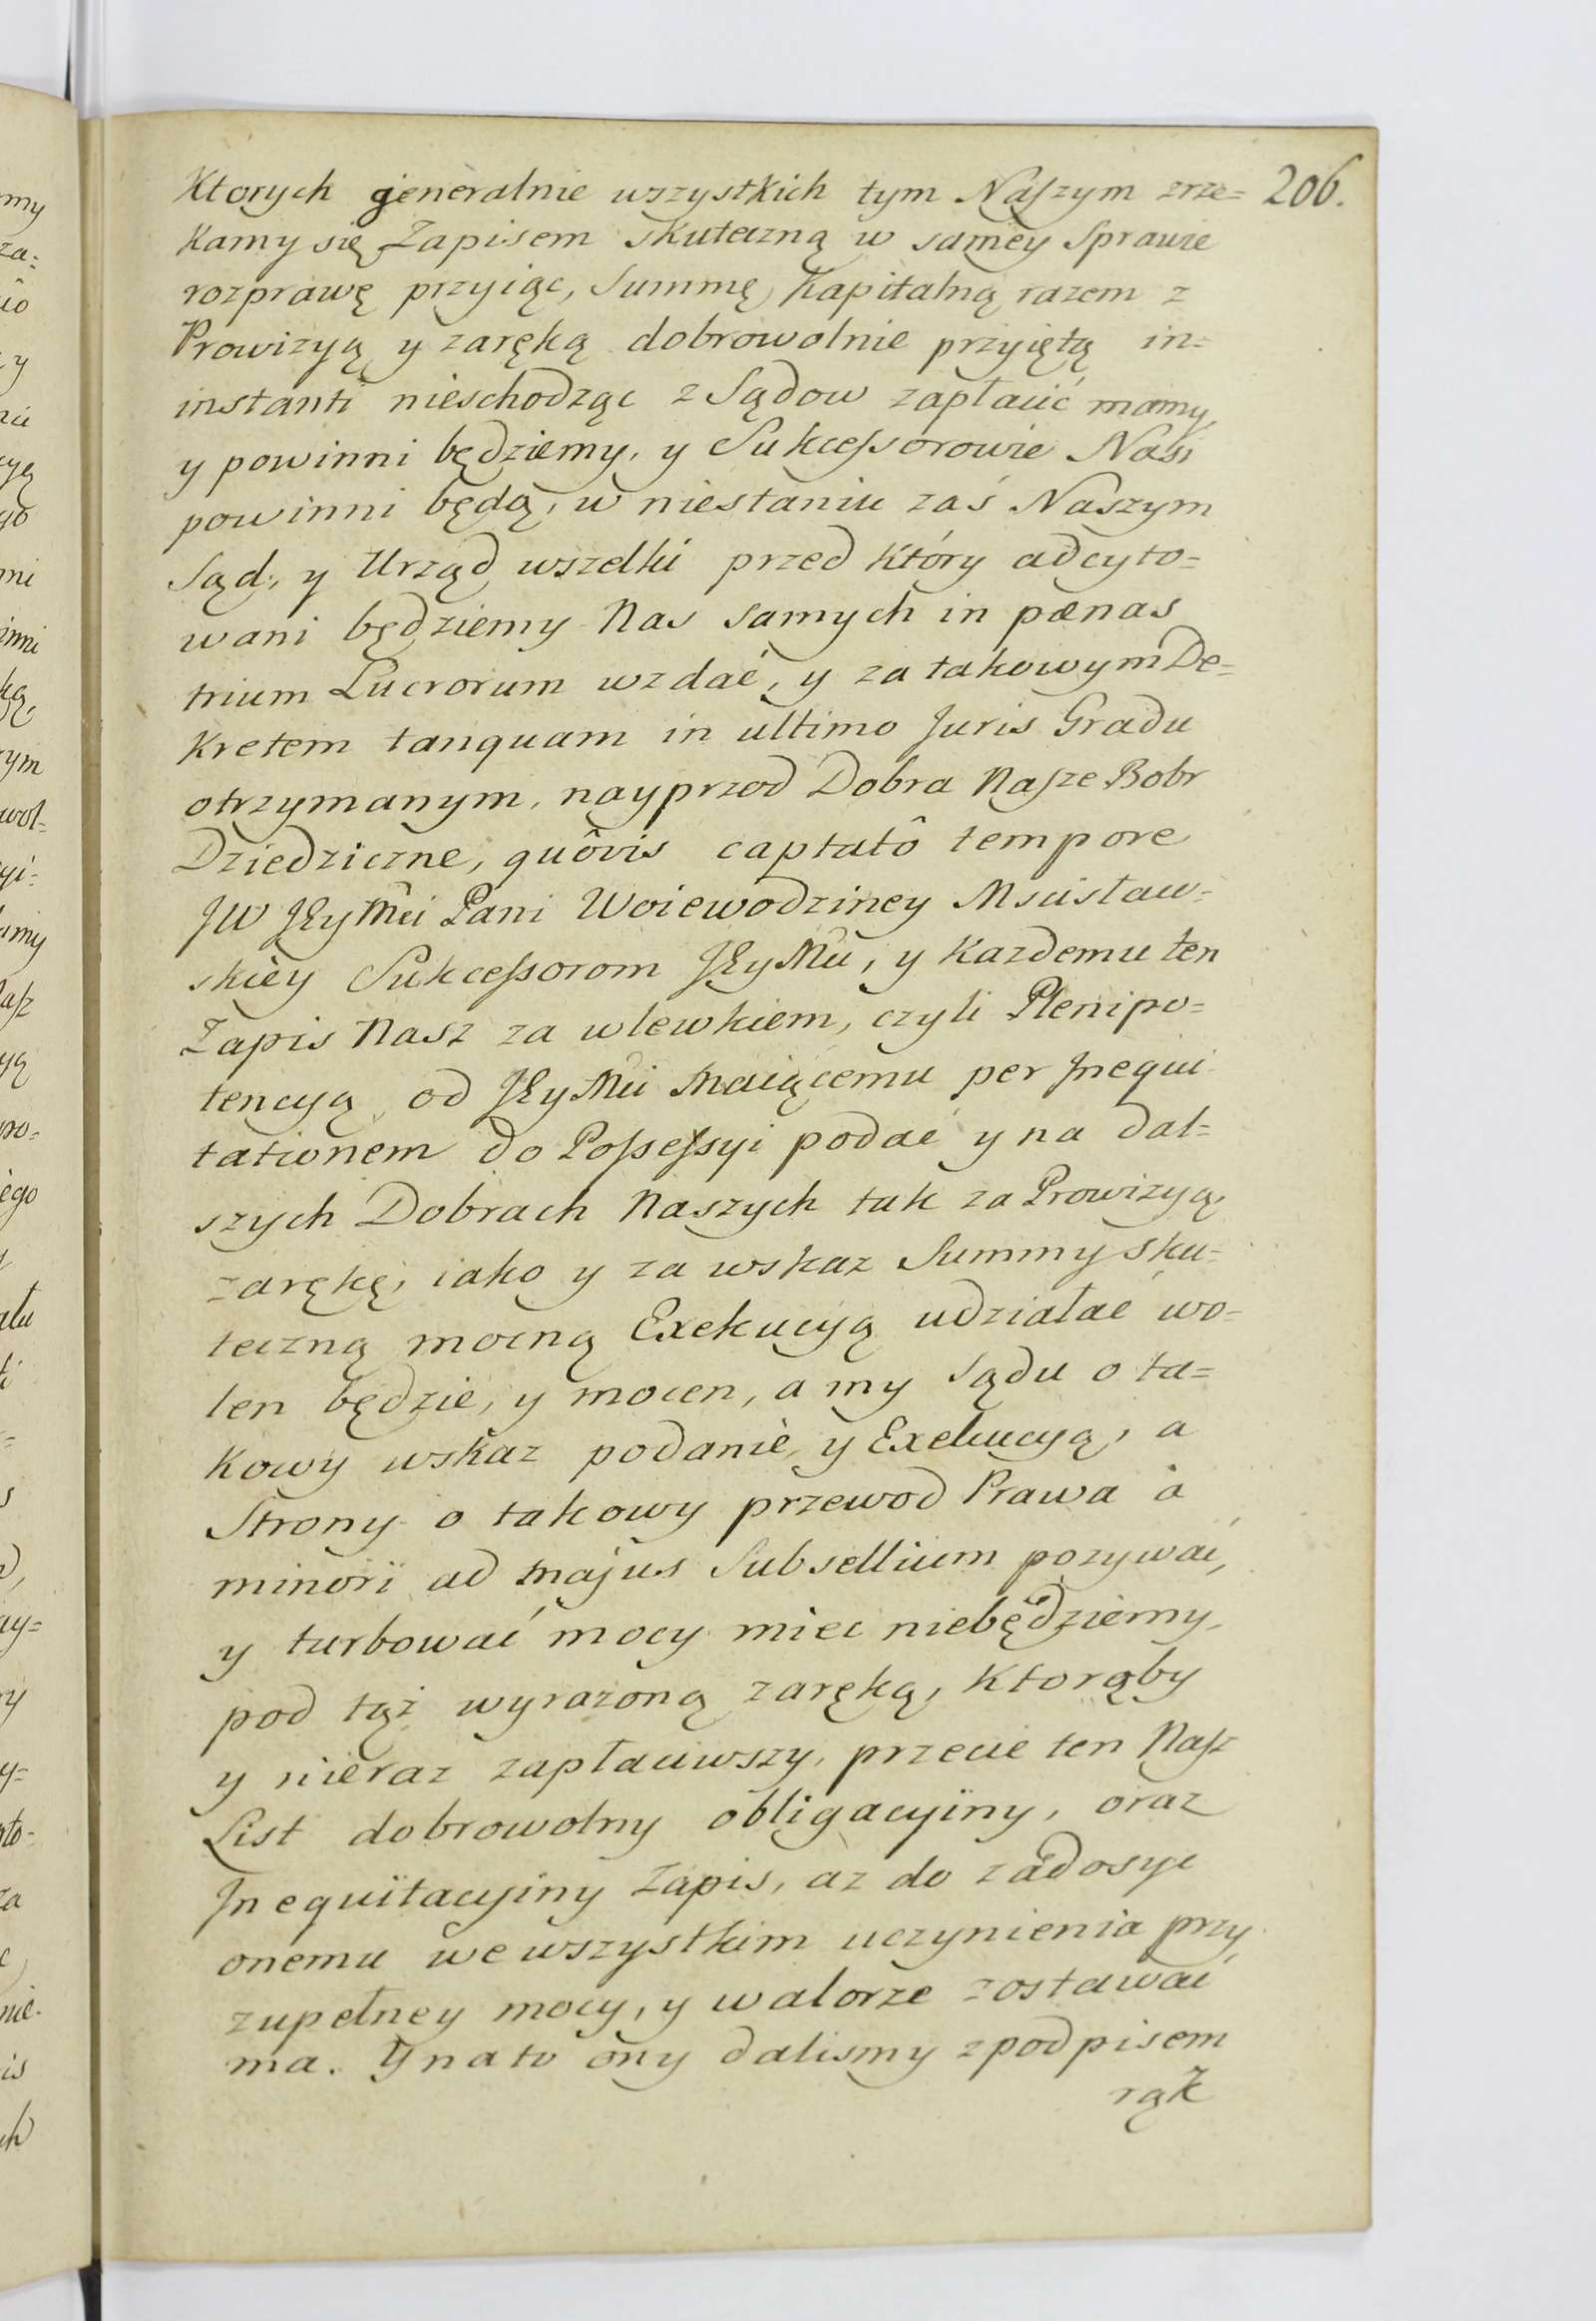 206.
Ktorych generalnie wszystkich tym Naszym zrze=
kamy się Zapisem skuteczną w samey Sprawie
rozprawę przyiąc, Summę Kapitalną razem z
Prowizyą y zaręką dobrowolnie przyiętą in=
instanti nieschodząc z Sądow zapłacić mamy,
y powinni będziemy, y Sukcessorowie Nasi
powinni będą, w niestaniu zaś Naszym
Sąd, y Urząd wszelki przed który adcyto=
wani będziemy Nas samych in pænas
trium Lucrorum wzdać, y za takowym De=
kretem tanquam in ultimo Juris Gradu
otrzymanym, nayprzod Dobra Nasze Bobr
Dziedziczne, quôvis captatô tempore
JW JEyMci Pani Woiewodziney Mscisław=
skiey Sukcessorom JEyMci, y każdemu ten
Zapis Nasz za wlewkiem, czyli Plenipo=
tencyą od JEyMci Maiącemu per Inequi
tationem do Possessyi podać y na dal=
szych Dobrach Naszych tak za Prowizyą
zarękę, iako y za wskaz Summy sku=
teczną mocną Exekucyą udziałać wo=
len będzie, y mocen, a my Sądu o ta=
kowy wskaz podanie, y Exekucyą, a
Strony o takowy przewod Prawa à
minori ad majus Subsellium pozywać,
y turbować mocy miec niebędziemy,
pod tąż wyrażoną zaręką, ktorąby
y nieraz zapłaciwszy, przecie ten Nasz
List dobrowolny obligacyiny, oraz
Inequitacyiny Zapis, az do zadosyc
onemu we wszystkim uczynienia przy
zupełney mocy, y walorze zostawać
ma. Y na to ony dalismy z podpisem
rąk